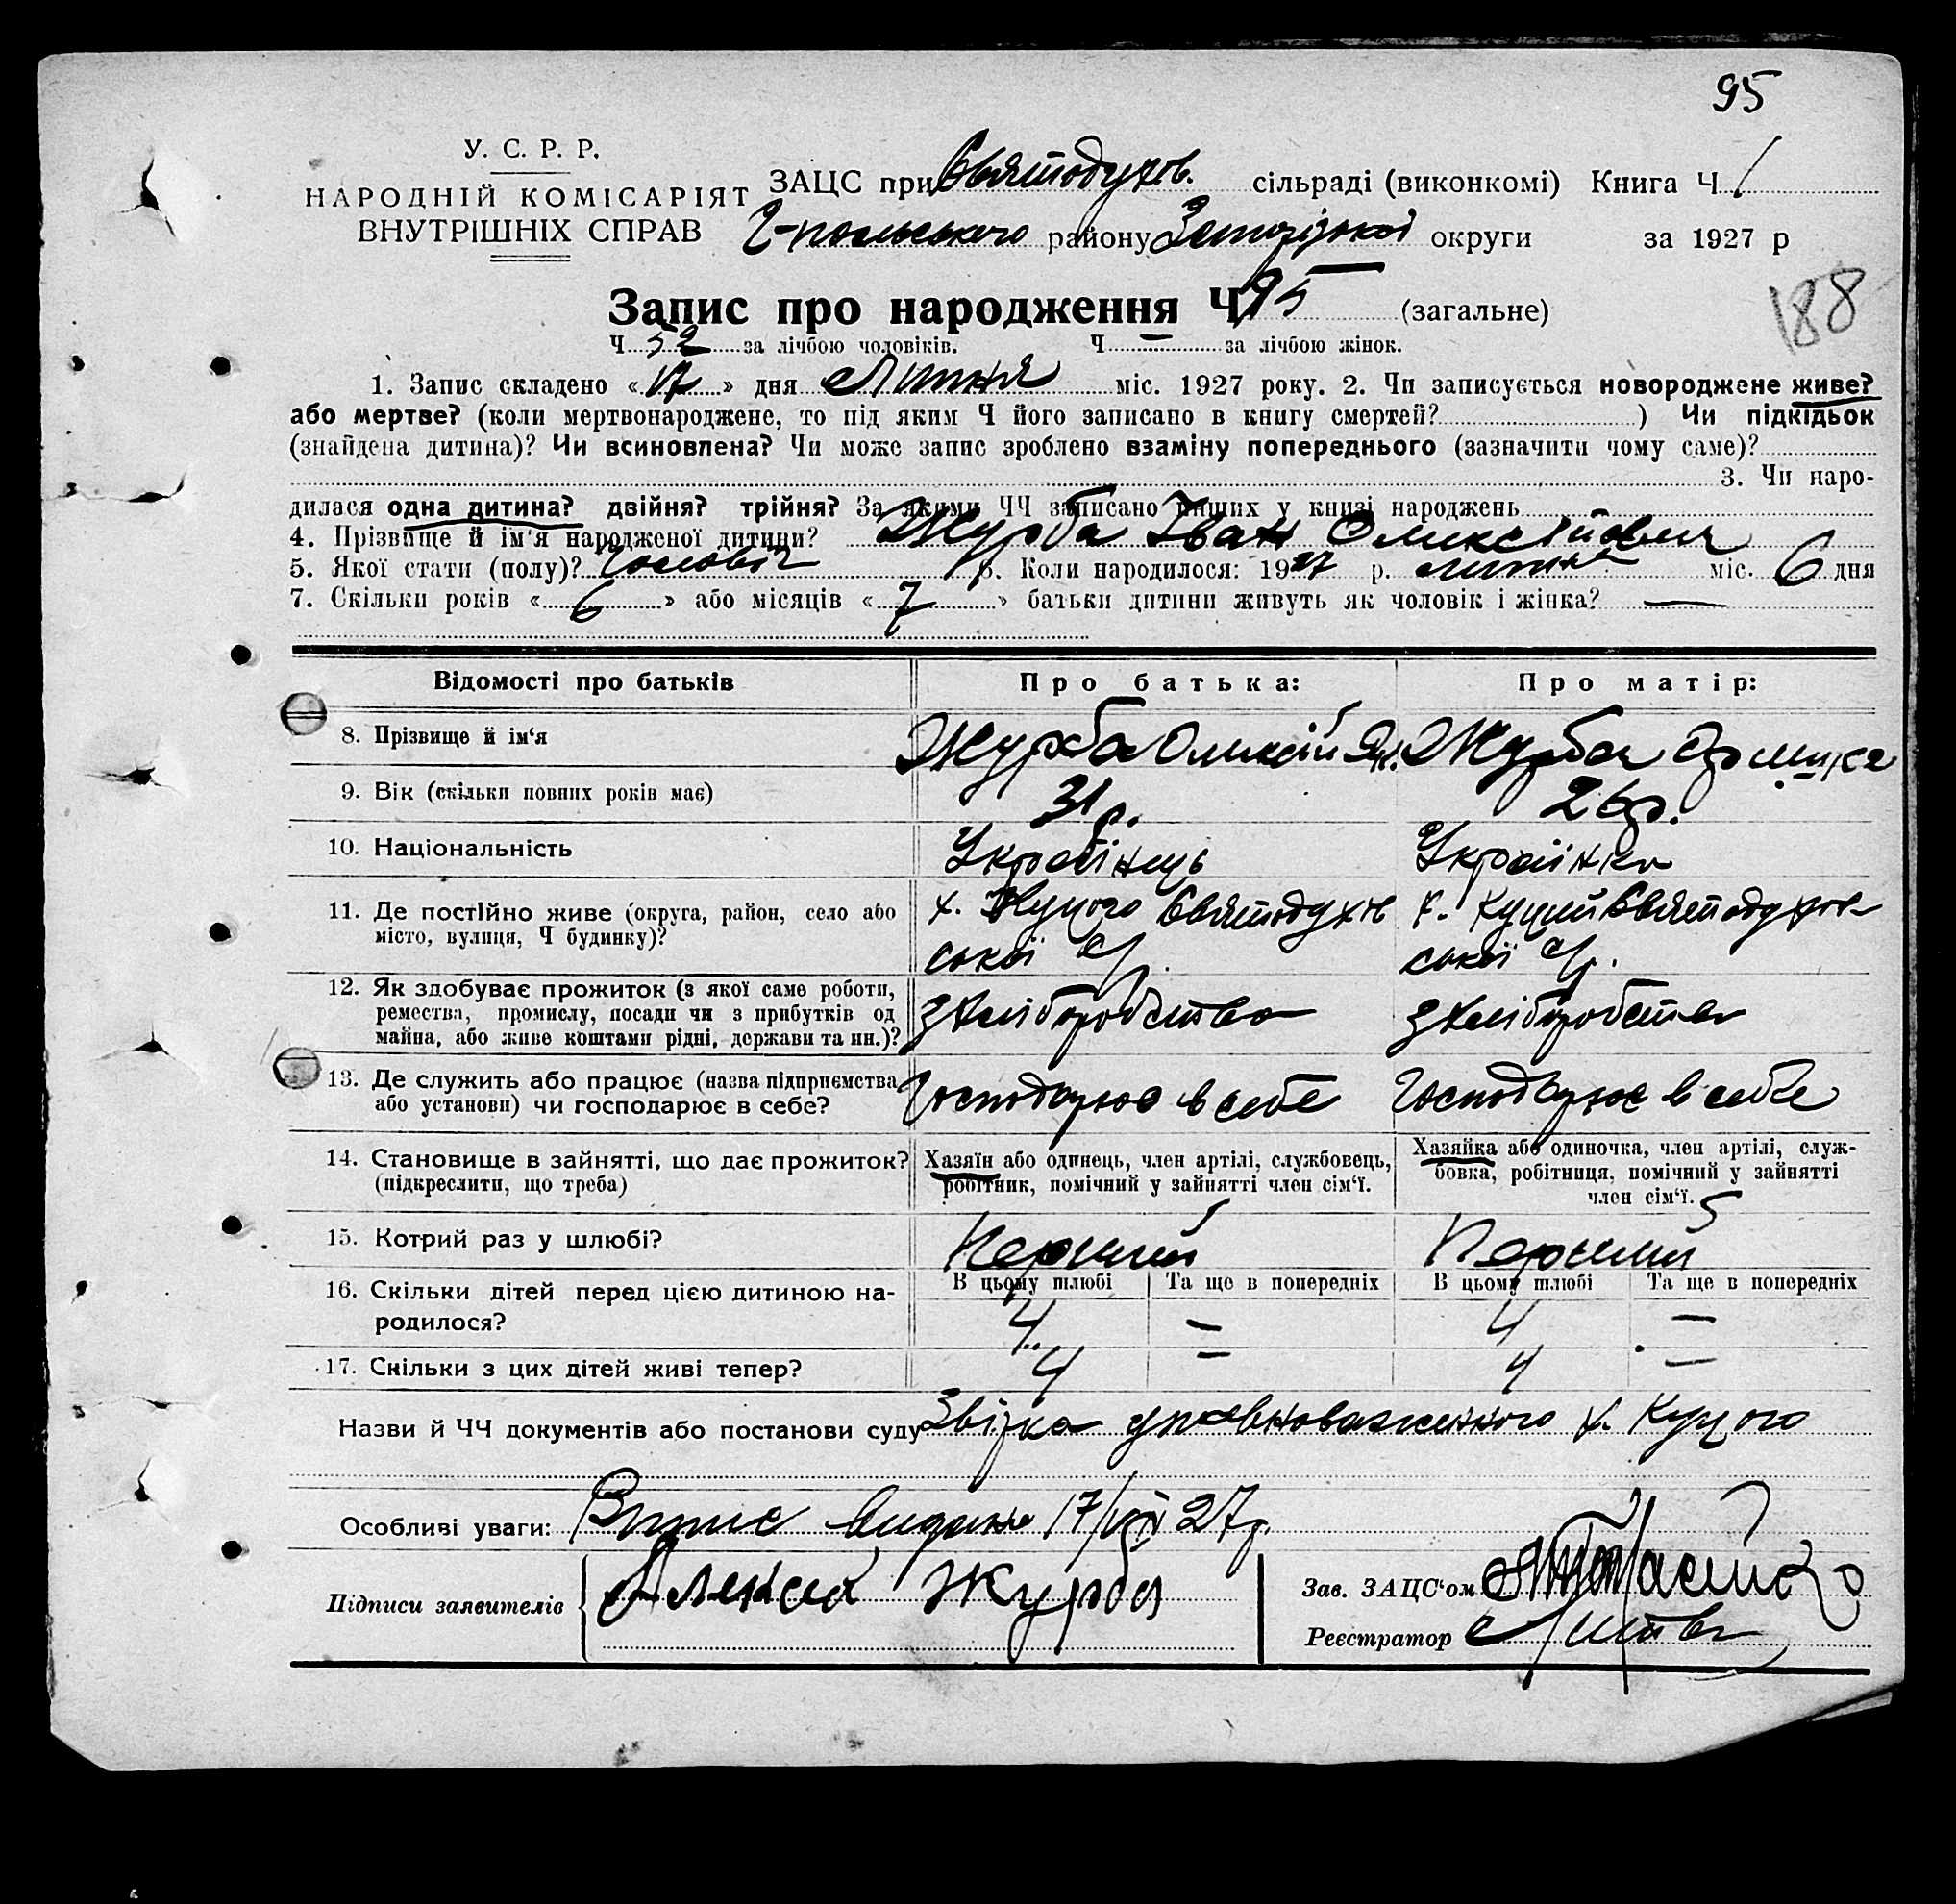 95
У. С. Р. Р.
НАРОДНІЙ КОМІСАРІЯТ
ВНУТРІШНІХ СПРАВ
ЗАЦС при Святодухов. сільраді (виконкомі) Книга Ч 1
Г-польського району Запорізької округи за 1927 р
188
Запис про народження Ч 95 (загальне)
Ч 52 за лічбою чоловіків. Ч — за лічбою жінок.
1. Запис складено «17» дня Липня міс. 1927 року. 2. Чи записується новороджене живе?
або мертве? (коли мертвонароджене, то під яким Ч його записано в книгу смертей? ) Чи підкідьок
(знайдена дитина)? Чи всиновлена? Чи може запис зроблено взаміну попереднього (зазначити чому саме)?
3. Чи наро-
дилася одна дитина? двійня? трійня? За якими ЧЧ записано инших у книзі народжень
4. Прізвище й ім'я народженої дитини? Журба Іван Олексійович
5. Якої стати (полу)? чоловіч 6. Коли народилося: 1927 р. липня міс. 6 дня
7. Скільки років «6» або місяців «7» батьки дитини живуть як чоловік і жінка? —
Відомості про батьків Про батька: Про матір:
8. Прізвище й ім'я Журба Олексій Журба
9. Вік (скільки повних років має) 31 р. 26 р.
10. Національність Українець Українка
11. Де постійно живе (округа, район, село або х. Куцого Святодухів х. Куций Святодухов-
місто, вулиця, Ч будинку)? ської с/р. ської с/р.
12. Як здобуває прожиток (з якої саме роботи,
ремества, промислу, посади чи з прибутків од з хліборобства з хліборобства
майна, або живе коштами рідні, держави та ин.)?
13. Де служить або працює (назва підприємства Господарює в себе Господарює в себе
або установи) чи господарює в себе?
14. Становище в зайнятті, що дає прожиток? Хазяїн або одинець, член артілі, службовець, Хазяйка або одиночка, член артілі, служ-
(підкреслити, що треба) робітник, помічний у зайнятті член сім'ї. бовка, робітниця, помічний у зайнятті
член сім'ї.
15. Котрий раз у шлюбі? Перший Перший
16. Скільки дітей перед цією дитиною на- В цьому шлюбі Та ще в попередніх В цьому шлюбі Та ще в попередніх
родилося? 4 — 4 —
17. Скільки з цих дітей живі тепер? 4 — 4 —
Назви й ЧЧ документів або постанови суду Звізка упавноваженного х. Куцого
Особливі уваги: Витис видано 17/VII 27 р.
Підписи заявителів Алексей Журба
Зав. ЗАЦС'ом
Реєстратор